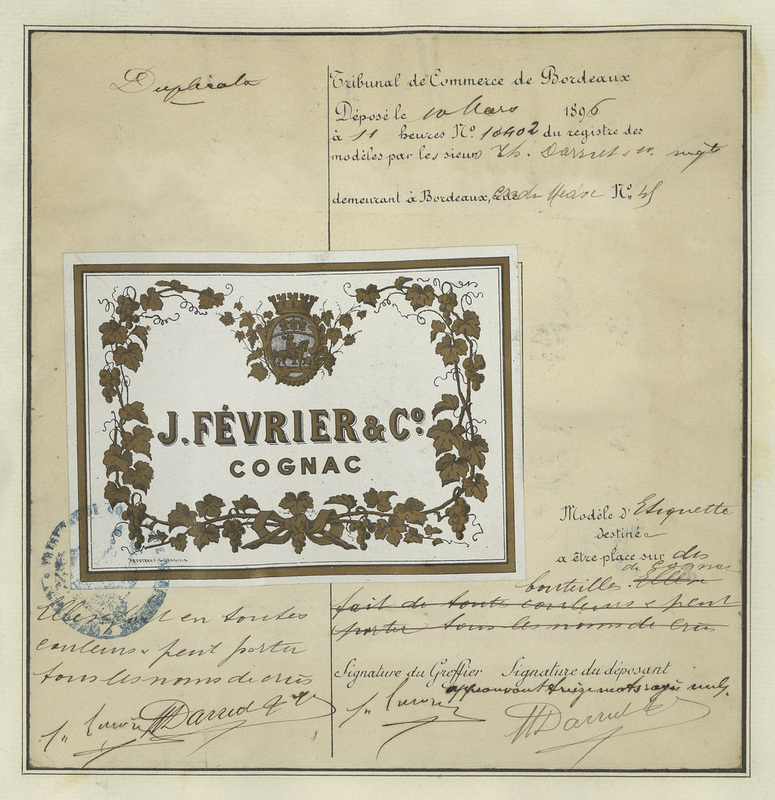 Duplicata
Tribunal de Commerce de Bordeaux
Déposé le 10 Mars 1896
à 11 heures No. 10402 du registre des
modèles par les sieurs Th.
demeurant à Bordeaux, No. 45
J. FÉVRIER & Co.
COGNAC
Modèle d'Etiquette
destinée
a être place sur des
bouteilles de Cognac
fait de toute couleurs & peut
porter tous les noms de crus
Elle se fait en toutes
couleurs & peut porter
tous les noms de crus
Signature du Greffier Signature du déposant
approuvant treize mots rayés nuls.